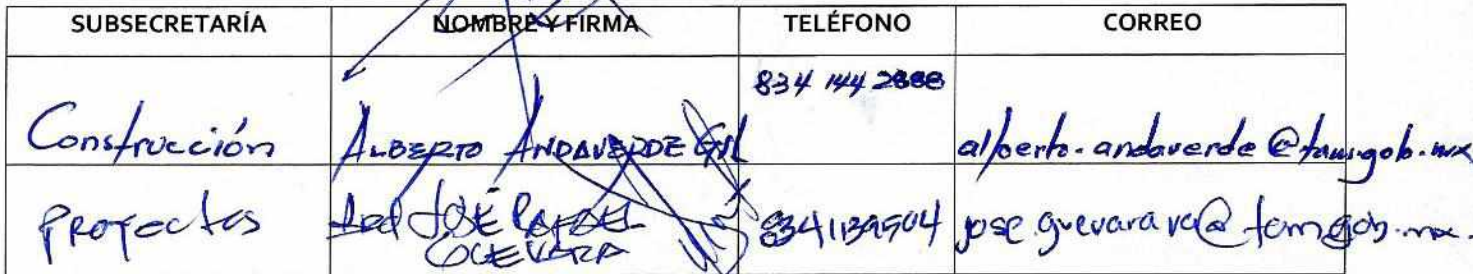 SUBSECRETARÍA NOMBRE Y FIRMA TELÉFONO CORREO
834 144 2888
Construcción ALBERTO ANDAVERDE GIL alberto.andaverde@tam.gob.mx
PROYECTOS JOSÉ RAFAEL GUEVARA 8341139504 jose.guevara va@tam.gob.mx.